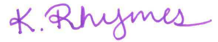 K. Rhymes